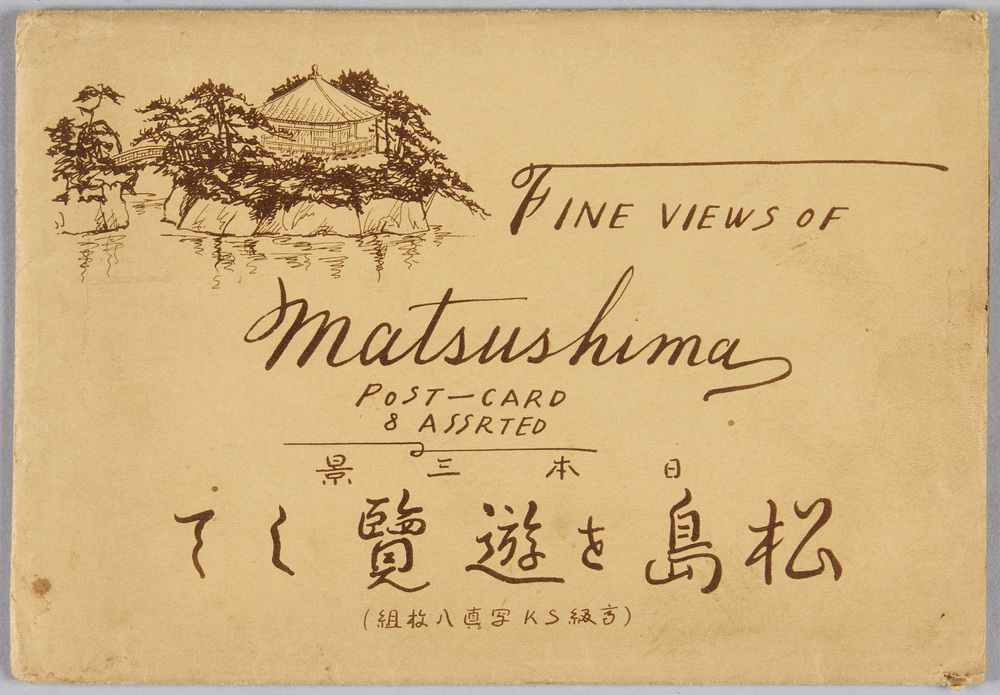 FINE VIEWS OF
Matsushima
POST-CARD
8 ASSRTED
日本三景
松島を遊覽して
(高級SK写真八枚組)